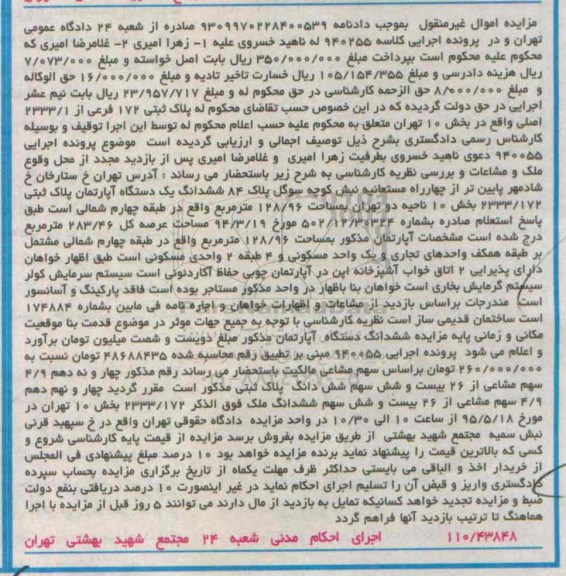 مزایده اموال غیرمنقول بموجب دادنامه ۹۳۰۹۹۷۰۲۲۸۴۰۰۵۳۹ صادره از شعبه ۲۴ دادگاه عمومی
تهران و در پرونده اجرایی کلاسه ۹۴۰۲۵۵ له ناهید خسروی علیه ۱- زهرا امیری ۲- غلامرضا امیری که
محکوم علیه محکوم است بپرداخت مبلغ ۳۵۰/۰۰۰/۰۰۰ ریال بابت اصل خواسته و مبلغ ۷/۰۷۳/۰۰۰
ریال هزینه دادرسی و مبلغ ۱۰۵/۱۵۴/۳۵۵ ریال خسارت تاخیر تادیه و مبلغ ۱۶/۰۰۰/۰۰۰ حق الوکاله
و مبلغ ۸/۰۰۰/۰۰۰ حق الزحمه کارشناسی در حق محکوم له و مبلغ ۲۳/۹۵۷/۷۱۷ ریال بابت نیم عشر
اجرایی در حق دولت گردیده که در این خصوص حسب تقاضای محکوم له پلاک ثبتی ۱۷۲ فرعی از ۲۳۳۳/۱
اصلی واقع در بخش ۱۰ تهران متعلق به محکوم علیه حسب اعلام محکوم له توسط این اجرا توقیف و بوسیله
کارشناس رسمی دادگستری بشرح ذیل توصیف اجمالی و ارزیابی گردیده است موضوع پرونده اجرایی
۹۴۰۰۵۵ دعوی ناهید خسروی بطرفیت زهرا امیری و غلامرضا امیری پس از بازدید مجدد از محل وقوع
ملک و مشاعات و بررسی نظریه کارشناسی به شرح زیر باستحضار می رساند : آدرس تهران خ ستارخان خ
شادمهر پایین تر از چهارراه مستعانیه نبش کوچه سوگل پلاک ۸۴ ششدانگ یک دستگاه آپارتمان پلاک ثبتی
۲۳۳۳/۱۷۲ بخش ۱۰ ناحیه دو تهران بمساحت ۱۲۸/۹۶ مترمربع واقع در طبقه چهارم شمالی است طبق
پاسخ استعلام صادره بشماره ۵۰۲/۱۲/۳۰۳۲۴ مورخ ۹۴/۳/۱۹ مساحت عرصه کل ۲۸۳/۴۶ مترمربع
درج شده است مشخصات آپارتمان مذکور بمساحت ۱۲۸/۹۶ مترمربع واقع در طبقه چهارم شمالی مشتمل
بر طبقه همکف واحدهای تجاری و یک واحد مسکونی و ۴ طبقه ۲ واحدی مسکونی است طبق اظهار خواهان
دارای پذیرایی ۲ اتاق خواب آشپزخانه اپن در آپارتمان چوبی حفاظ آکاردئونی است سیستم سرمایش کولر
سیستم گرمایش بخاری است خواهان بنا باظهار در واحد مذکور مستاجر بوده است فاقد پارکینگ و آسانسور
است مندرجات براساس بازدید از مشاعات و اظهارات خواهان و اجاره نامه فی مابین بشماره ۱۷۴۸۸۴
است ساختمان قدیمی ساز است نظریه کارشناسی با توجه به جمیع جهات موثر در موضوع قدمت بنا موقعیت
مکانی و زمانی پایه مزایده ششدانگ دستگاه آپارتمان مذکور مبلغ دویست و شصت میلیون تومان برآورد
و اعلام می شود پرونده اجرایی ۹۴۰۰۵۵ مبنی بر تطبیق رقم محاسبه شده ۴۸۶۸۸۴۳۵ تومان نسبت به
۲۶۰/۰۰۰/۰۰۰ تومان براساس سهم مشاعی مالکیت باستحضار می رساند رقم مذکور چهار و نه دهم ۴/۹
سهم مشاعی از ۲۶ بیست و شش سهم شش دانگ پلاک ثبتی مذکور است مقرر گردید چهار و نهم دهم
۴/۹ سهم مشاعی از ۲۶ بیست و شش سهم ششدانگ ملک فوق الذکر ۲۳۳۳/۱۷۲ بخش ۱۰ تهران در
مورخ ۹۵/۵/۱۸ از ساعت ۱۰ الی ۱۰/۳۰ در واحد مزایده دادگاه حقوقی تهران واقع در خ سپهبد قرنی
نبش سمیه مجتمع شهید بهشتی از طریق مزایده بفروش برسد مزایده از قیمت پایه کارشناسی شروع و
کسی که بالاترین قیمت را پیشنهاد نماید برنده مزایده خواهد بود ۱۰ درصد مبلغ پیشنهادی فی المجلس
از خریدار اخذ و الباقی می بایستی حداکثر ظرف مهلت یکماه از تاریخ برگزاری مزایده بحساب سپرده
دادگستری واریز و قبض آن را تسلیم اجرای احکام نماید در غیر اینصورت ۱۰ درصد دریافتی بنفع دولت
ضبط و مزایده تجدید خواهد کسانیکه تمایل به بازدید از مال دارند می توانند ۵ روز قبل از مزایده با اجرا
هماهنگ تا ترتیب بازدید آنها فراهم گردد
۱۱۰/۴۳۸۴۸ اجرای احکام مدنی شعبه ۲۴ مجتمع شهید بهشتی تهران